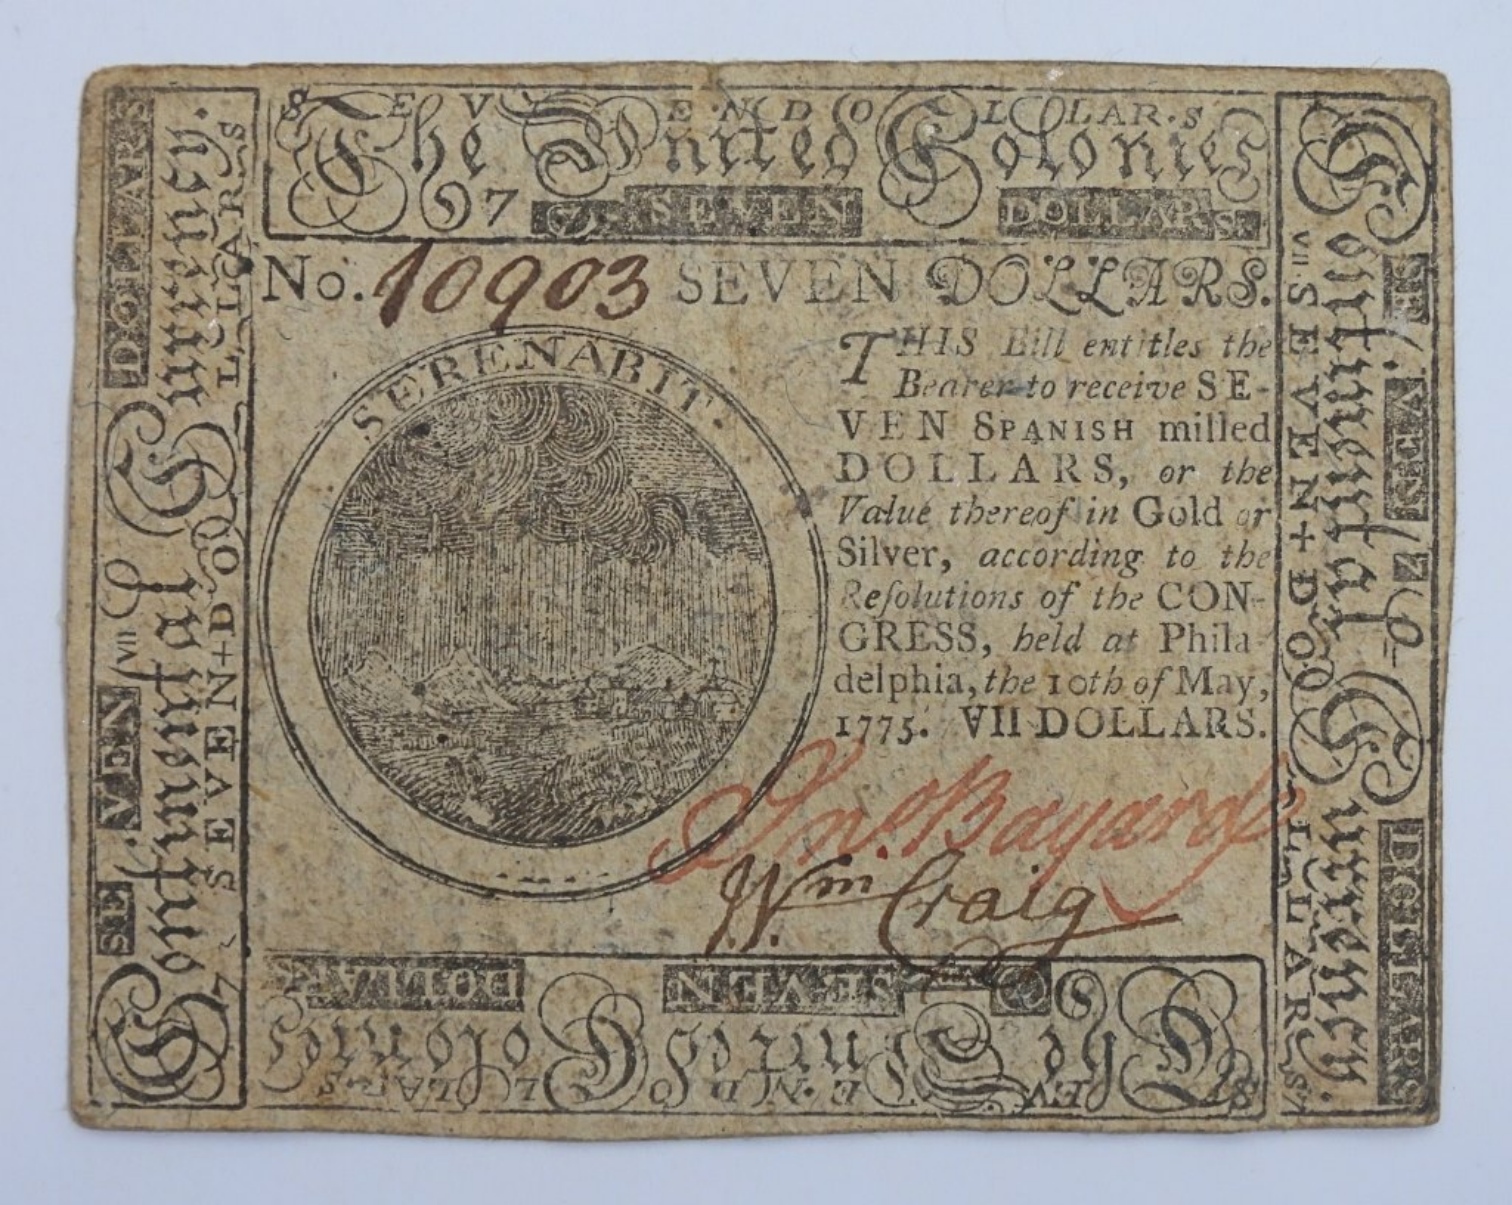 SEVEN DOLLARS
The United Colonies
7 SEVEN DOLLARS.
No. 10903 SEVEN DOLLARS.
SERENABIT.
THIS Bill entitles the
Bearer to receive SE-
VEN SPANISH milled
DOLLARS, or the
Value thereof in Gold or
Silver, according to the
Reſolutions of the CON-
GRESS, held at Phila-
delphia, the 10th of May,
1775. VII DOLLARS.
Jno. Bayard
Wm. Craig
DOLLARS SEVEN
The United Colonies
SEVEN DOLLARS
SE VEN DOLLARS
Continental Currency.
7 SEVEN+DOLLARS
VII
VII.SEVEN+DOLLARS
Continental Currency.
SE VEN DOLLARS